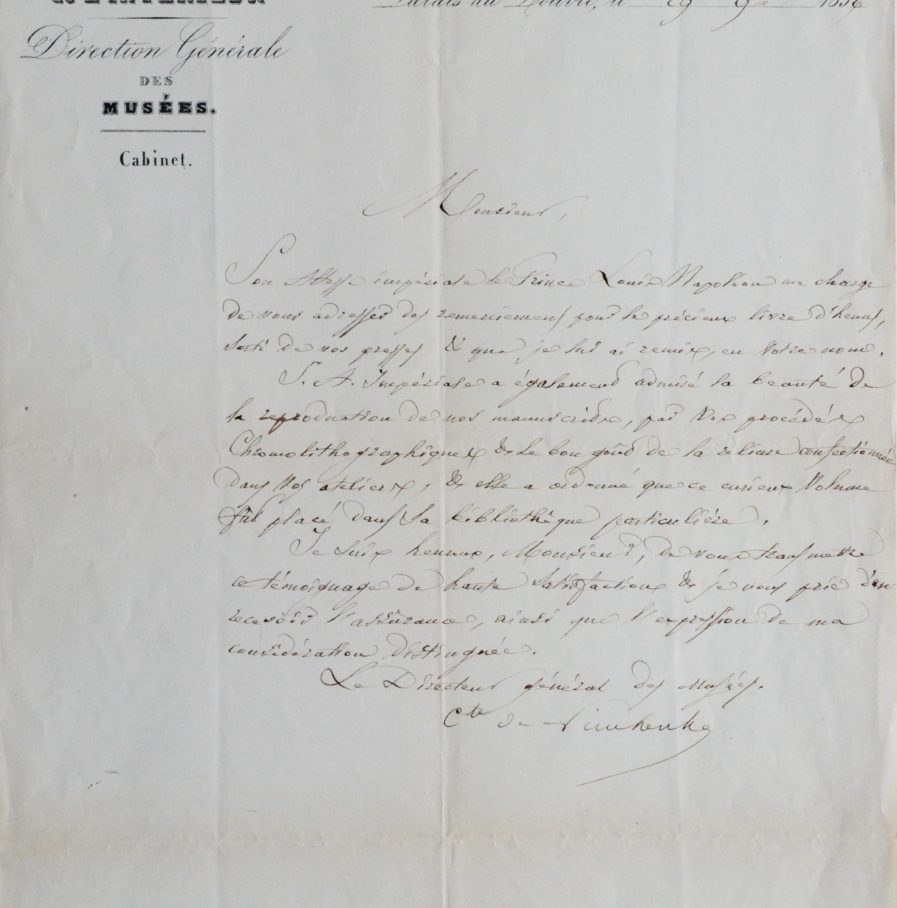 Palais du Louvre, le 29 9bre 1856
Direction Générale
DES
MUSÉES.
Cabinet.
Monsieur,
Son Altesse impériale le Prince Louis Napoléon me charge
de vous adresser des remerciements pour le précieux livre d'heures,
sorti de vos presses & que je lui ai remis, en votre nom.
S. A. Impériale a également admiré la beauté de
la reproduction de nos manuscrits, par vos procédés
Chromolithographiques & le bon goût de la reliure confectionnée
dans vos ateliers, & elle a ordonné que ce curieux volume
fut placé dans sa bibliothèque particulière.
Je suis heureux, Monsieur, de vous transmettre
ce témoignage de haute satisfaction & je vous prie d'en
recevoir l'assurance, ainsi que l'expression de ma
considération distinguée.
Le Directeur général des Musées.
Cte de Nieuwerkerke